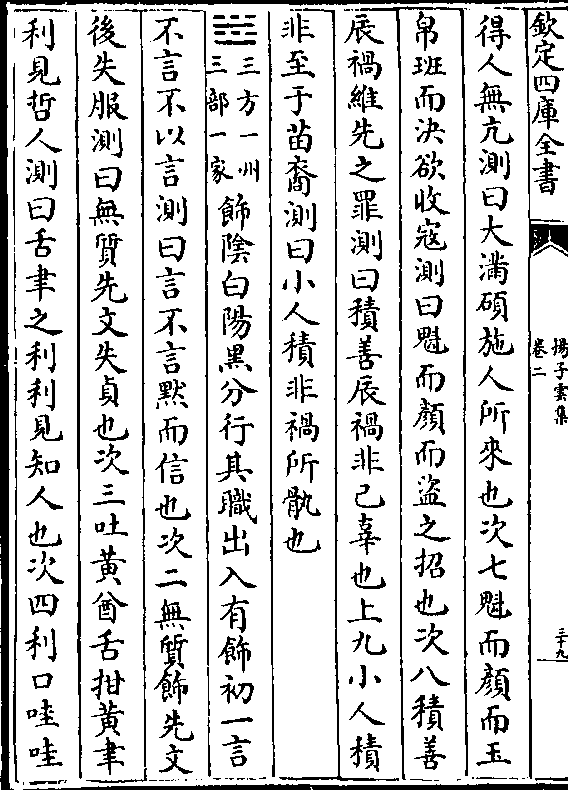 欽定四庫全書
揚子雲集
卷二
三十九
得人無亢測曰大滿碩施人所來也次七魁而顏而玉
帛班而決欲收寇測曰魁而顏而盜之招也次八積善
辰禍維先之罪測曰積善辰禍非己辜也上九小人積
非至于苗裔測曰小人積非禍所骫也
三方一州
三部一家
飾陰白陽黑分行其職出入有飾初一言
不言不以言測曰言不言黙而信也次二無質飾先文
後失服測曰無質先文失貞也次三吐黄酋舌拑黄聿
利見哲人測曰舌聿之利利見知人也次四利口哇哇